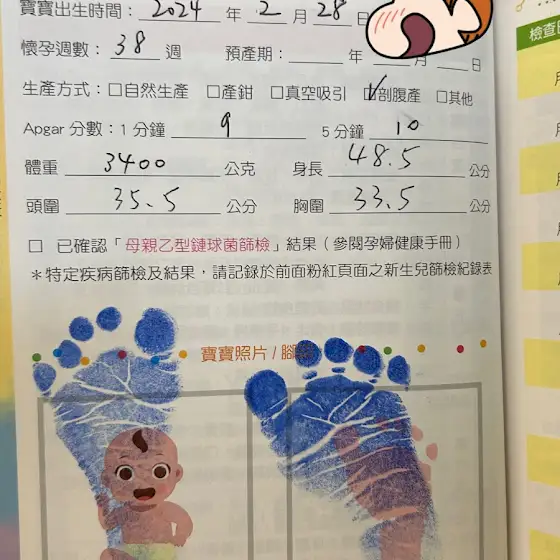 寶寶出生時間：2024 年 2 月 28 日
懷孕週數：38 週 預產期： 年 月 日
生產方式：□自然生產 □產鉗 □真空吸引 ☑剖腹產 □其他
Apgar 分數：1 分鐘 9 5 分鐘 10
體重 3400 公克 身長 48.5 公分
頭圍 35.5 公分 胸圍 33.5 公分
□ 已確認「母親乙型鏈球菌篩檢」結果（參閱孕婦健康手冊）
＊特定疾病篩檢及結果，請記錄於前面粉紅頁面之新生兒篩檢紀錄表
寶寶照片 / 腳
檢查